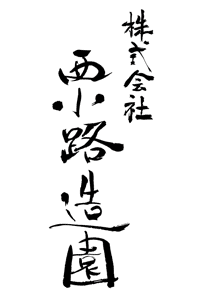 株式会社
西小路造園